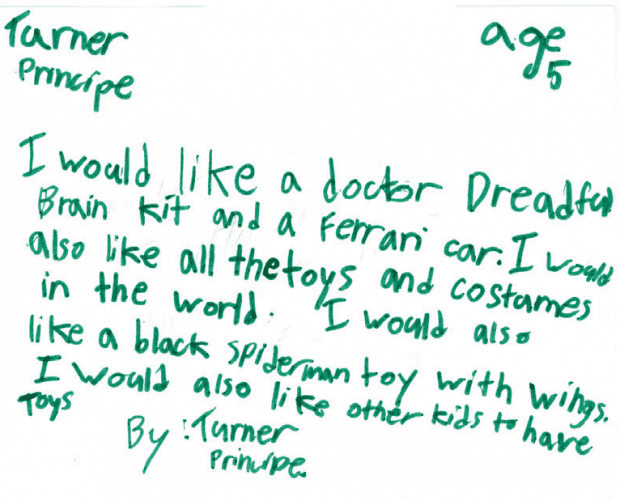 Turner
Principe
age
5
I would like a doctor Dreadful
Brain kit and a Ferrari car. I would
also like all the toys and costames
in the world. I would also
like a black spiderman toy with wings.
I would also like other kids to have
Toys
By: Turner
Principe.